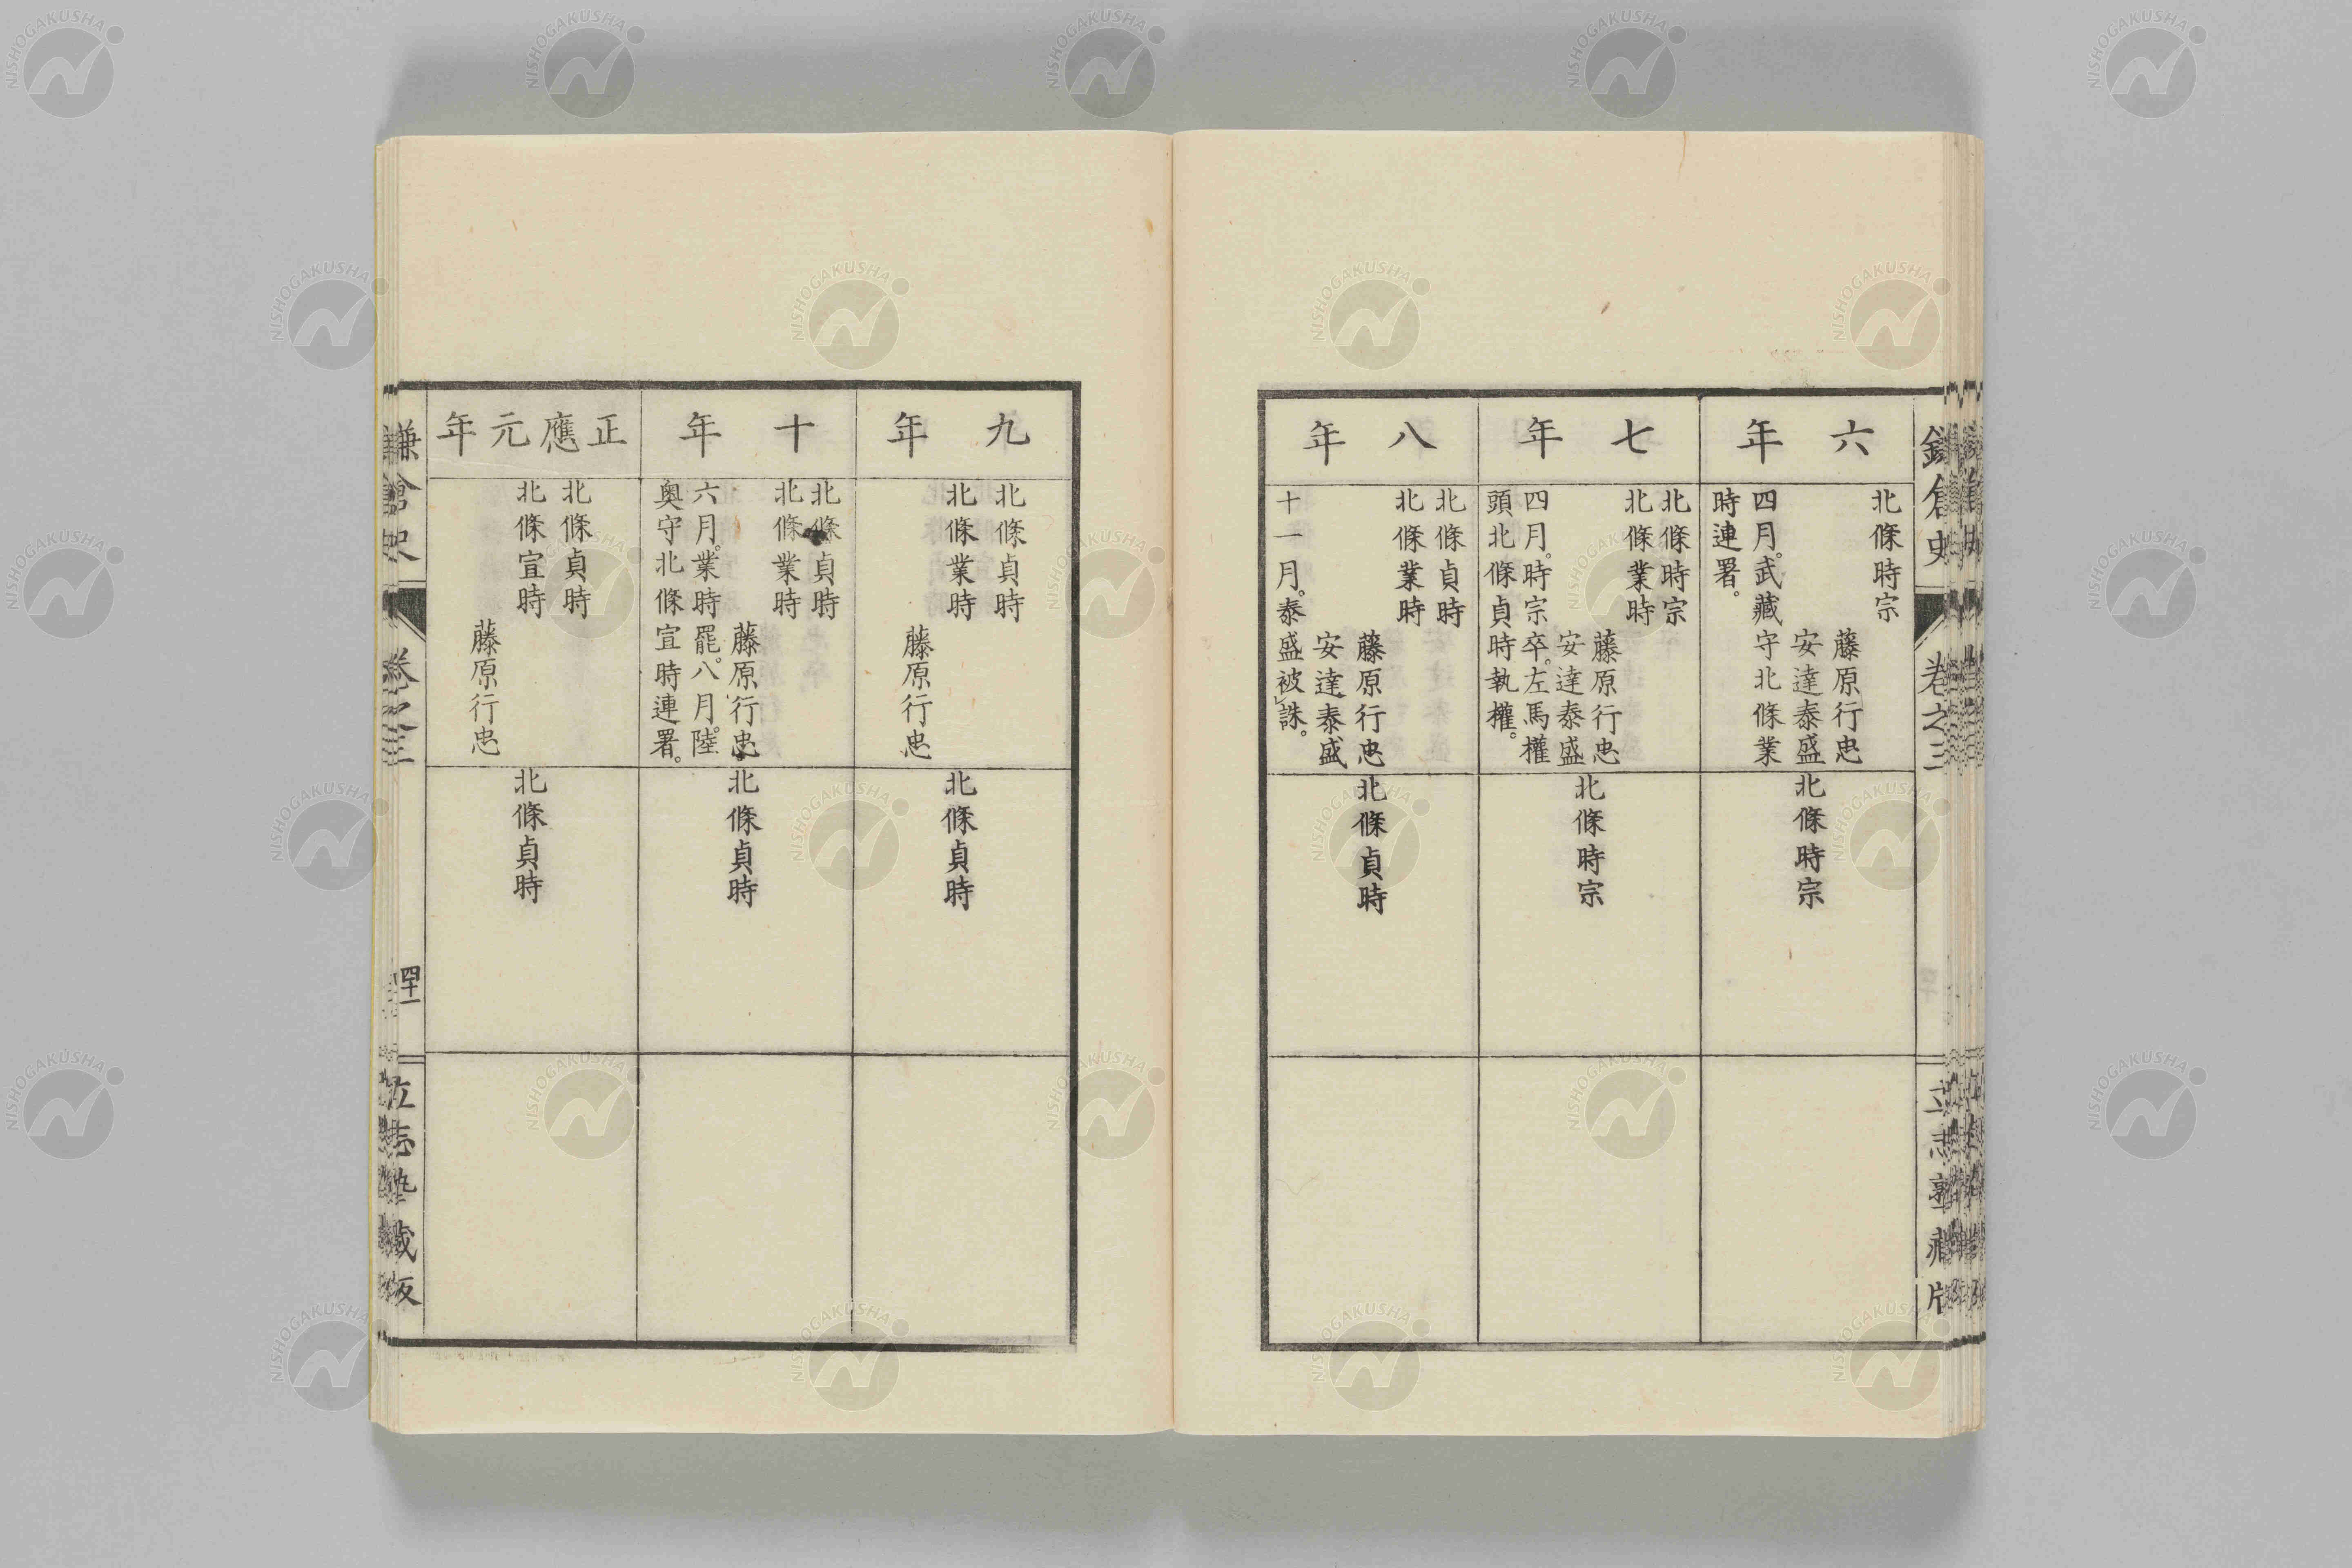 鎌倉史 卷之三
立志塾藏版
六年
北條時宗
藤原行忠
安達泰盛
四月。武藏守北條業
時連署。
北條時宗
七年
北條時宗
北條業時
藤原行忠
安達泰盛
四月。時宗卒。左馬權
頭北條貞時執權。
北條時宗
八年
北條貞時
北條業時
藤原行忠
安達泰盛
十一月。泰盛被レ誅。
北條貞時
九年
北條貞時
北條業時
藤原行忠
北條貞時
十年
北條貞時
北條業時
藤原行忠
六月。業時罷。八月。陸
奥守北條宣時連署。
北條貞時
正應元年
北條貞時
北條宣時
藤原行忠
北條貞時
卷之三
四十一
NISHOGAKUSHA